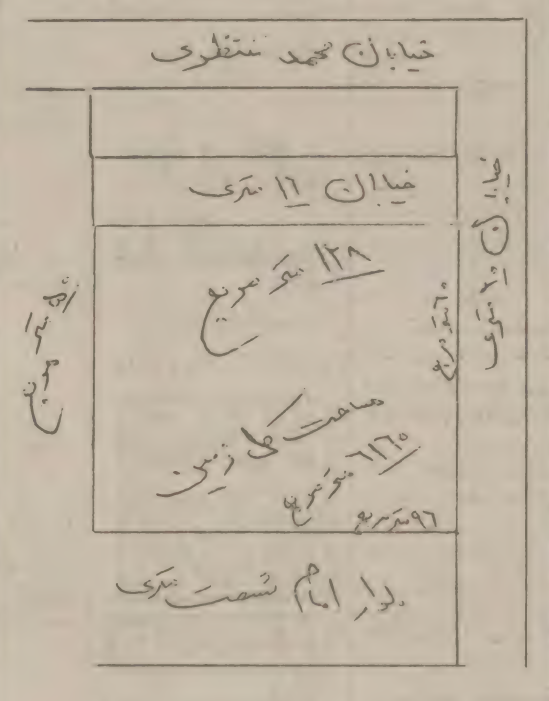 خیابان محمد منتظری
خیابان ۱۶ متری
۱۲۸ متر مربع
خیابان ۲۰ متری
۶۰ متر مربع
متر مربع
مساحت کل زمین
۶۱۶۰ متر مربع
۹۶ متر مربع
بلوار امام شصت متری